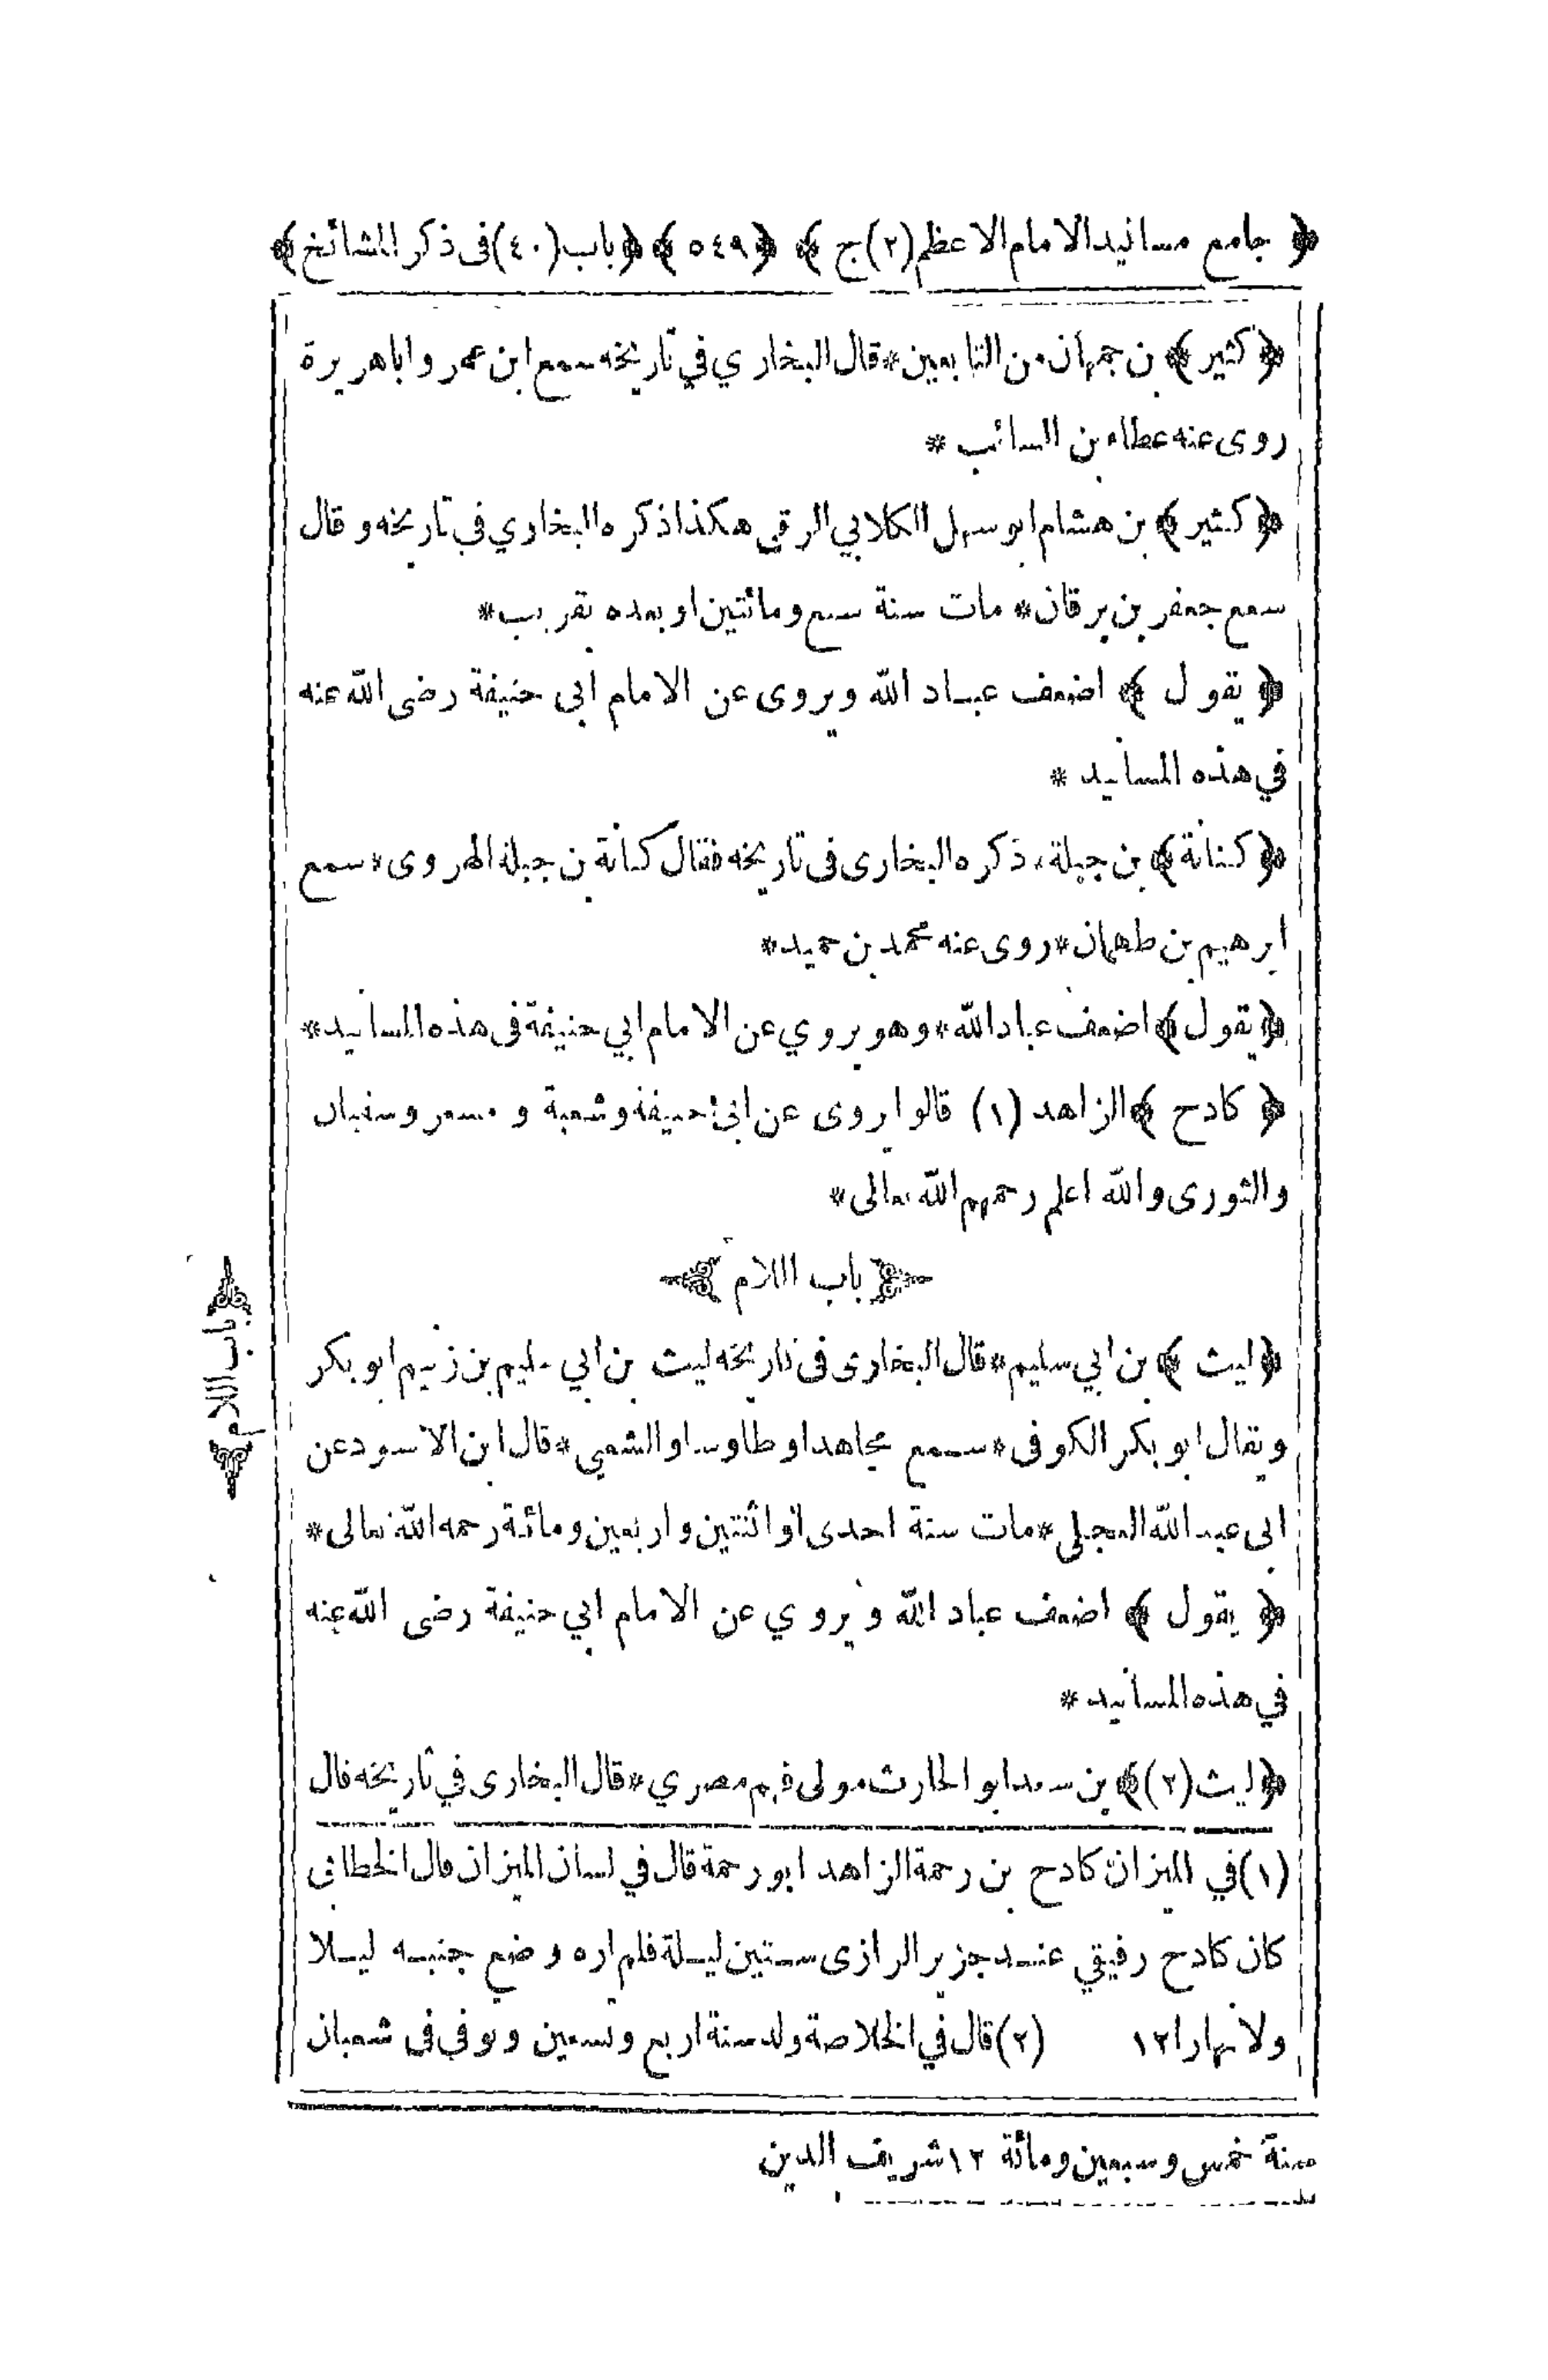 ﴿ جامع مسانيد الامام الاعظم (٢) ج ﴾ ﴿ ٥٤٩ ﴾ ﴿ باب (٤٠) فى ذكر المشائخ ﴾
﴿ كثير ﴾ بن جمهان من التابعين * قال البخاري في تاريخه سمع ابن عمر و اباهريرة
روى عنه عطاء بن السائب *
﴿ كثير ﴾ بن هشام ابو سهل الكلابي الرقي هكذا ذكره البخاري في تاريخه و قال
سمع جعفر بن برقان * مات سنة سبع ومائتين او بعده بقريب *
﴿ يقول ﴾ اضعف عباد الله و يروى عن الامام ابى حنيفة رضى الله عنه
في هذه المسانيد *
﴿ كنانة ﴾ بن جبلة * ذكره البخارى فى تاريخه فقال كنانة بن جبلة الهروى * سمع
ابرهيم بن طهمان * روى عنه محمد بن حميد *
﴿ يقول ﴾ اضعف عباد الله * وهو يروي عن الامام ابي حنيفة فى هذه المسانيد *
﴿ كادح ﴾ الزاهد (١) قالوا يروى عن ابى حنيفة وشعبة و مسعر وسفيان
والثورى والله اعلم رحمهم الله تعالى *
﴿ باب اللام ﴾
﴿ باب اللام ﴾
﴿ ليث ﴾ بن ابي سليم * قال البخارى فى تاريخه ليث بن ابي سليم بن زنيم ابو بكر
ويقال ابو بكر الكوفى * سمع مجاهدا و طاوسا والشعبي * قال ابن الاسود عن
ابى عبد الله العجلي * مات سنة احدى او اثنتين و اربعين ومائة رحمه الله تعالى *
﴿ يقول ﴾ اضعف عباد الله و يروي عن الامام ابي حنيفة رضى الله عنه
في هذه المسانيد *
﴿ ليث (٢) ﴾ بن سعد ابو الحارث مولى فهم مصري * قال البخارى في تاريخه قال
(١) في الميزان كادح بن رحمة الزاهد ابو رحمة قال في لسان الميزان قال
كان كادح رفيقي عند جزير الرازى ستين ليلة فلم اره وضع جنبه ليلا
ولا نهارا ١٢ (٢) قال في الخلاصة ولد سنة اربع وتسعين وتوفي فى شعبان
سنة خمس وسبعين ومائة ١٢ شريف الدين